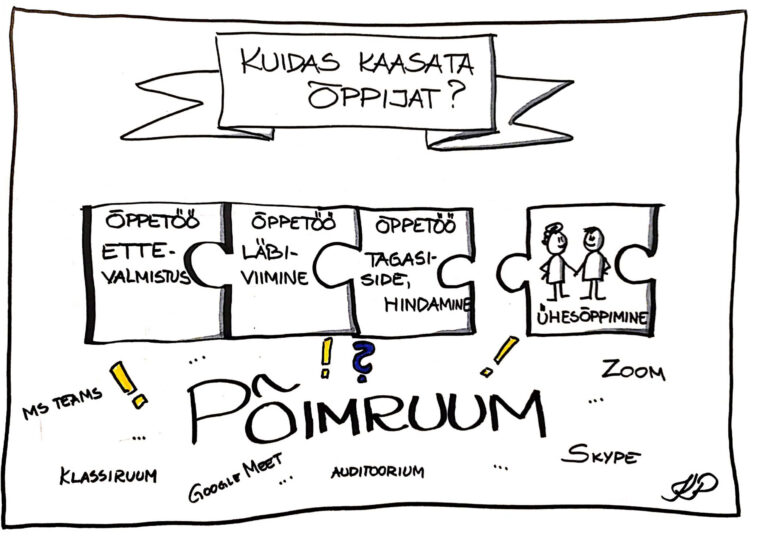 KUIDAS KAASATA
ÕPPIJAT?
ÕPPETÖÖ
ETTE-
VALMISTUS
ÕPPETÖÖ
LÄBI-
VIIMINE
ÕPPETÖÖ
TAGASI-
SIDE,
HINDAMINE
ÜHESÕPPIMINE
! ...
! ?
!
ZOOM
MS TEAMS
PÕIMRUUM
...
...
KLASSIRUUM
GOOGLE MEET
...
AUDITOORIUM
...
SKYPE
KP